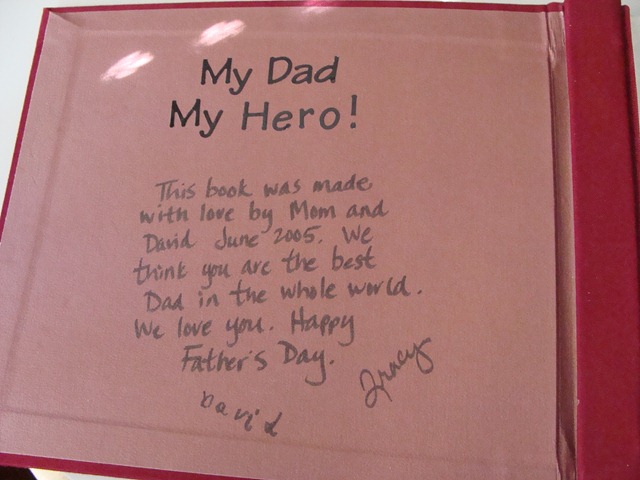 My Dad
My Hero!
This book was made
with love by Mom and
David June 2005. We
think you are the best
Dad in the whole world.
We love you. Happy
Father's Day.
Tracy
David